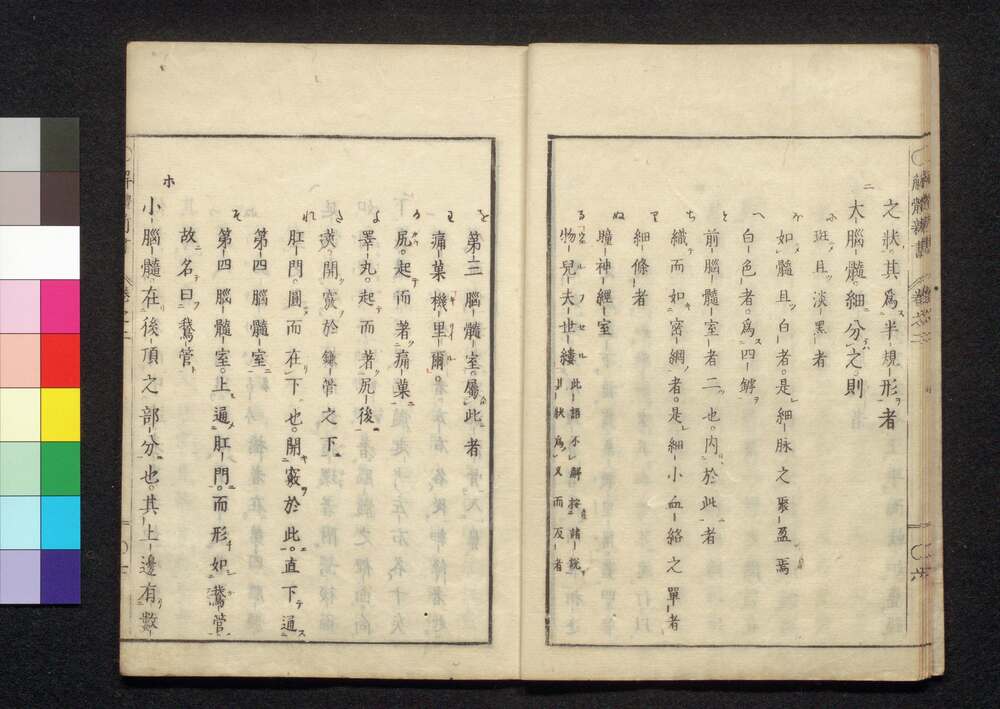 之狀。其爲半規形者
ニ 大腦髓。細分之則
に 斑且淡黑者
ほ 如髓且白者。是細脉之聚盈焉
へ 白色者。爲四罅
と 前腦髓室者二也。内於此者
ち 織而如密網者。是細小血絡之單者
り 細條者
ぬ 瞳神經室
る 物兒夫世縷 此語不解按諸說 以狀爲又而反者
を 第三腦髓室。屬此者
わ 痛菓機里爾。
か 尻。起而著痛菓
よ 睪丸。起而著尻後
た 漢。開竅於鎌管之下
れ 肛門。圓而在下也。開竅於此。直下通
第四腦髓室
そ 第四腦髓室。上通肛門。而形如鵞管
故名曰鵞管
ホ 小腦髓在後頂之部分也。其上邊有數